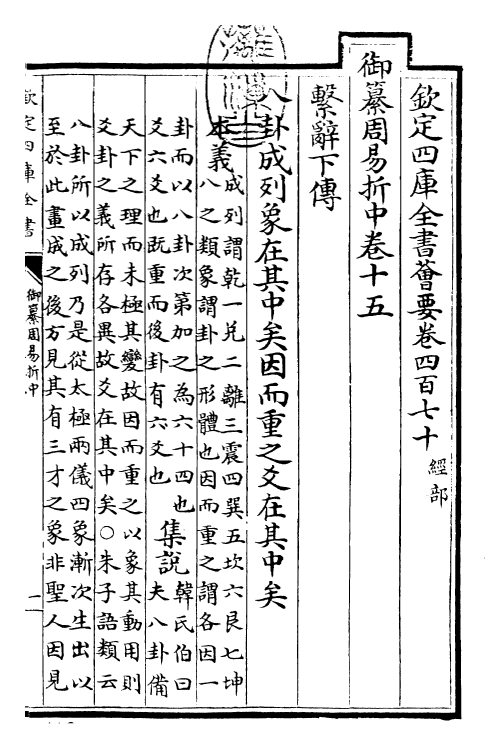 欽定四庫全書薈要卷四百七十 經部
御纂周易折中卷十五
繫辭下傳
八卦成列象在其中矣因而重之爻在其中矣
本義 成列謂乾一兌二離三震四巽五坎六艮七坤
八之類象謂卦之形體也因而重之謂各因一
卦而以八卦次第加之為六十四也
爻六爻也既重而後卦有六爻也
集說 韓氏伯曰
夫八卦備
天下之理而未極其變故因而重之以象其動用則
爻卦之義所存各異故爻在其中矣○朱子語類云
八卦所以成列乃是從太極兩儀四象漸次生出以
至於此畫成之後方見其有三才之象非聖人因見
欽定四庫全書
御纂周易折中
一